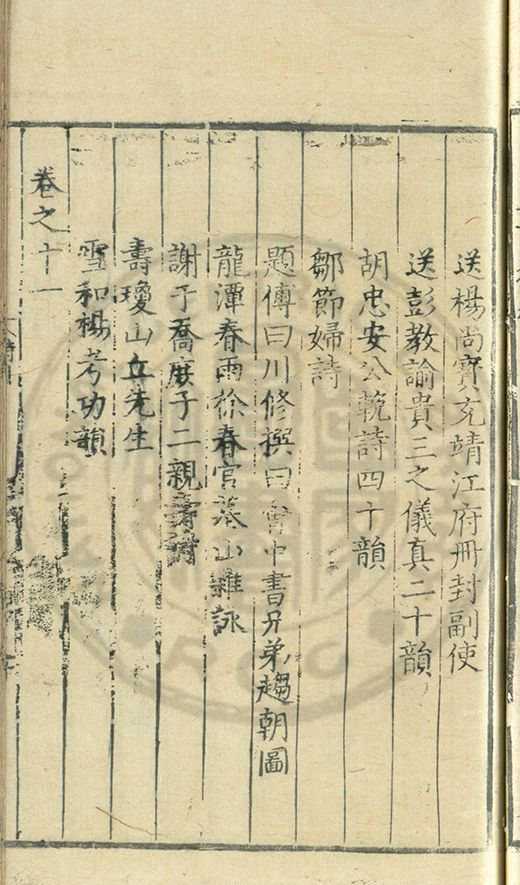 送楊尚寶充靖江府冊封副使
送彭教諭貴三之儀真二十韻
胡忠安公輓詩四十韻
鄒節婦詩
題傅曰川修撰曰會中書兄弟趨朝圖
龍潭春雨徐春官茶山雜詠
謝于喬庶子二親壽詩
壽瓊山丘先生
雪和楊考功韻
卷之十一